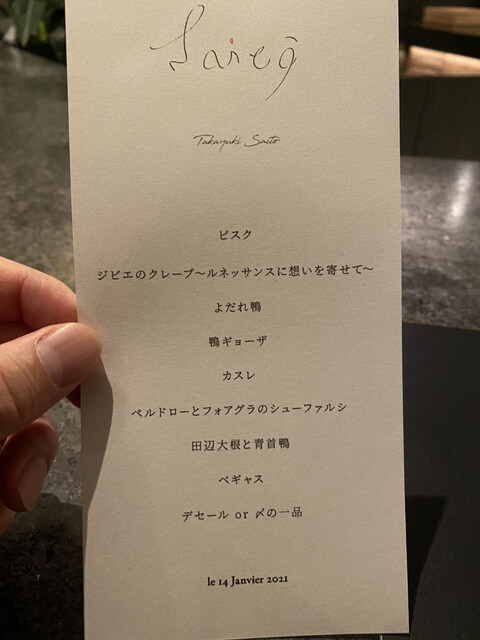 Takayuki Saito
ビスク
ジビエのクレープ～ルネッサンスに想いを寄せて～
よだれ鴨
鴨ギョーザ
カスレ
ペルドローとフォアグラのシューファルシ
田辺大根と青首鴨
ベギャス
デセール or 〆の一品
le 14 Janvier 2021